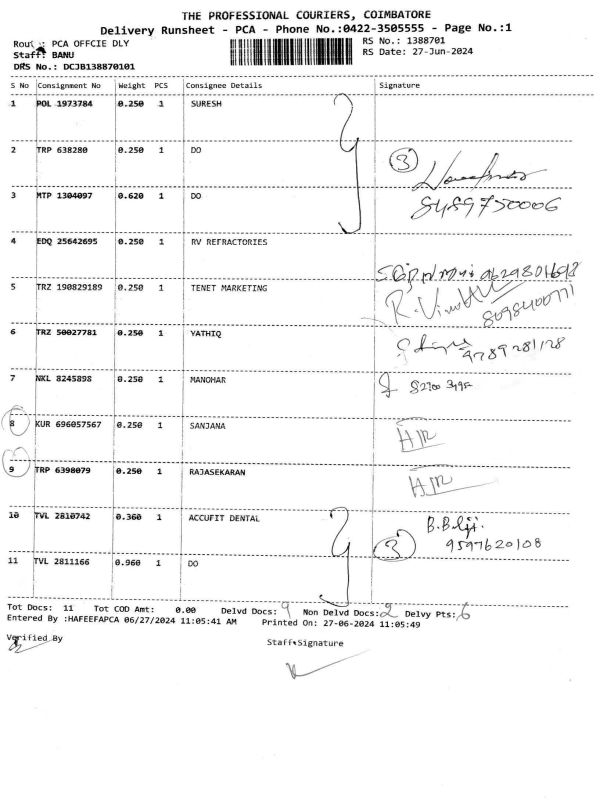 THE PROFESSIONAL COURIERS, COIMBATORE
Delivery Runsheet - PCA - Phone No.:0422-3505555 - Page No.:1
Route: PCA OFFCIE DLY
RS No.: 1388701
Staff: BANU
RS Date: 27-Jun-2024
DRS No.: DCJB138870101
S No Consignment No Weight PCS Consignee Details Signature
1 POL 1973784 0.250 1 SURESH
2 TRP 638280 0.250 1 DO
3
3 MTP 1304097 0.620 1 DO
8489750006
4 EDQ 25642695 0.250 1 RV REFRACTORIES
9629801698
5 TRZ 190829189 0.250 1 TENET MARKETING
8098400771
6 TRZ 50027781 0.250 1 YATHIQ
9789281128
7 NKL 8245898 0.250 1 MANOHAR
8 KUR 696057567 0.250 1 SANJANA
9 TRP 6398079 0.250 1 RAJASEKARAN
10 TVL 2810742 0.360 1 ACCUFIT DENTAL
3 9597620108
11 TVL 2811166 0.960 1 DO
Tot Docs: 11 Tot COD Amt: 0.00 Delvd Docs: 9 Non Delvd Docs: 2 Delvy Pts: 6
Entered By :HAFEEFAPCA 06/27/2024 11:05:41 AM Printed On: 27-06-2024 11:05:49
Verified By Staff Signature